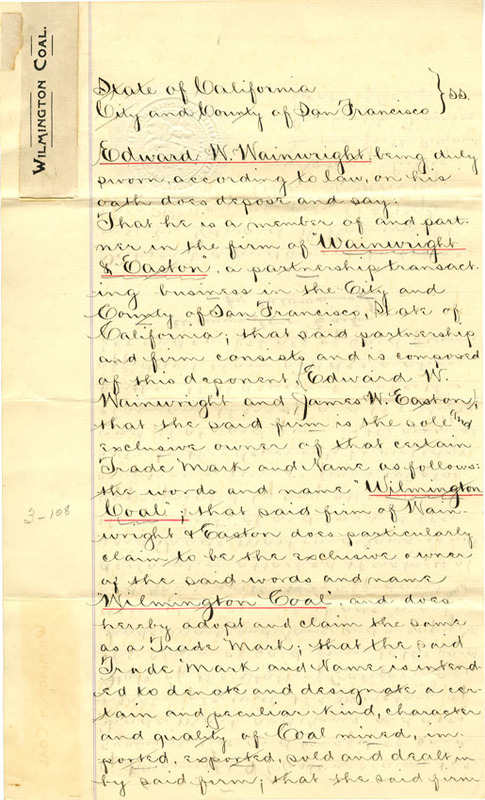 WILMINGTON COAL.
State of California } ss.
City and County of San Francisco
Edward W. Wainwright, being duly
sworn, according to law, on his
oath does depose and say:
That he is a member of and part-
ner in the firm of "Wainwright
& Easton", a partnership transact-
ing business in the City and
County of San Francisco, State of
California; that said partnership
and firm consists and is composed
of this deponent, (Edward W.
Wainwright and James W. Easton);
that the said firm is the sole and
exclusive owner of that certain
Trade Mark and Name as follows:
the words and name "Wilmington
Coal"; that said firm of Wain-
wright & Easton does particularly
claim to be the exclusive owner
of the said words and name
"Wilmington Coal", and does
hereby adopt and claim the same
as a Trade Mark; that the said
Trade Mark and Name is intend-
ed to denote and designate a cer-
tain and peculiar kind, character
and quality of Coal mined, im-
ported, exported, sold and dealt in
by said firm; that the said firm
3-108